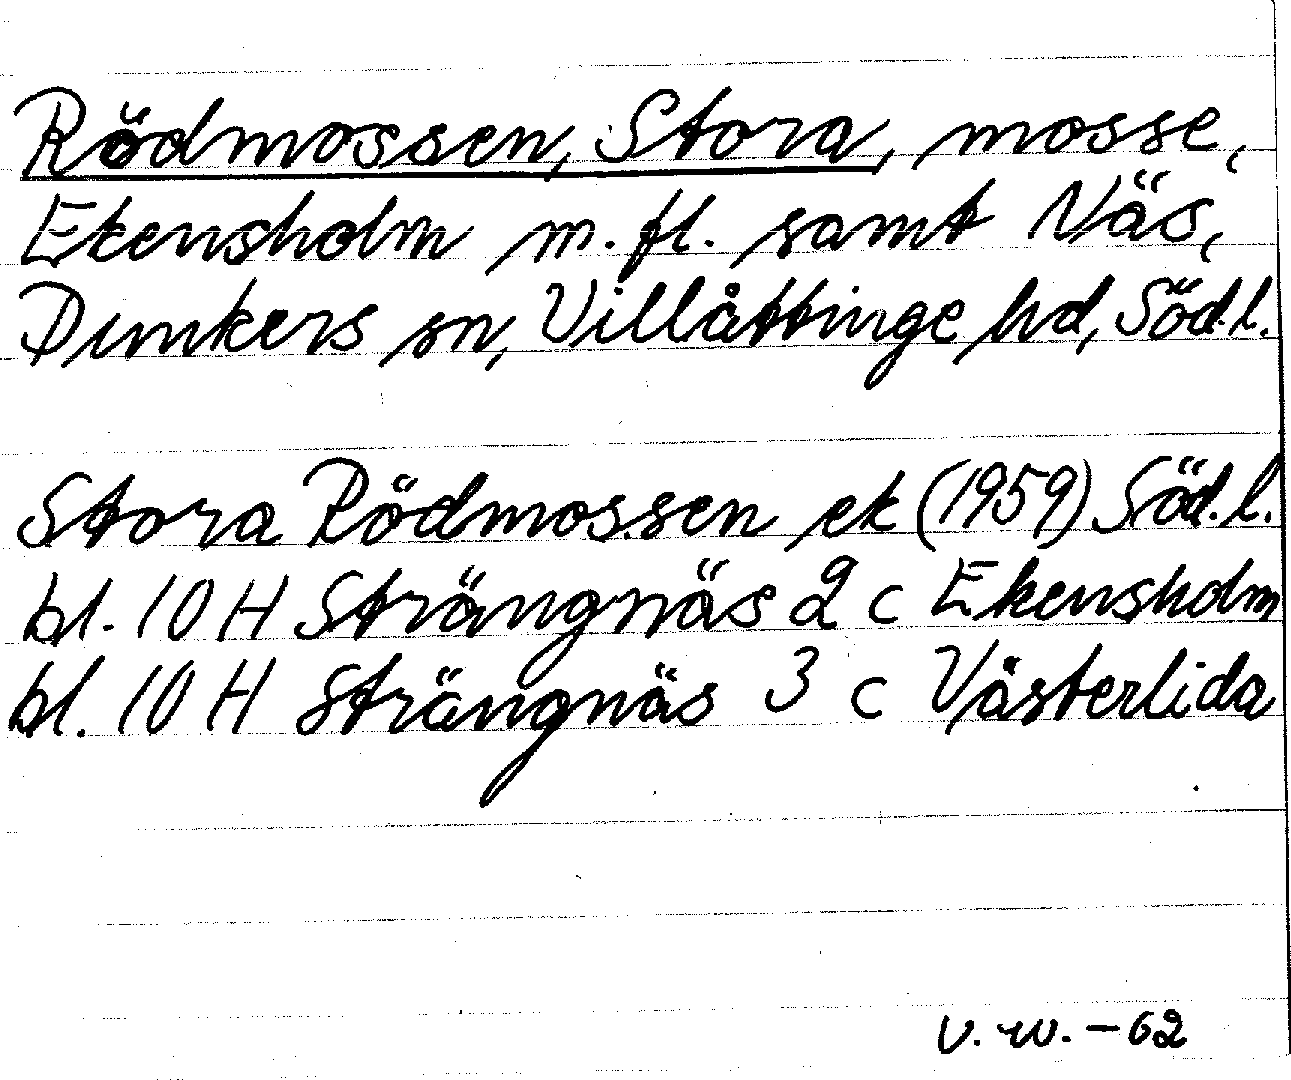 Rödmossen, Stora, mosse,
Ekensholm m. fl. samt Näs,
Dunkers sn, Villåttinge hd, Söd.l.
Stora Rödmossen ek (1959) Söd.l.
bl. 10 H Strängnäs 2 c Ekensholm
bl. 10 H Strängnäs 3 c Västerlida
v. w. - 62